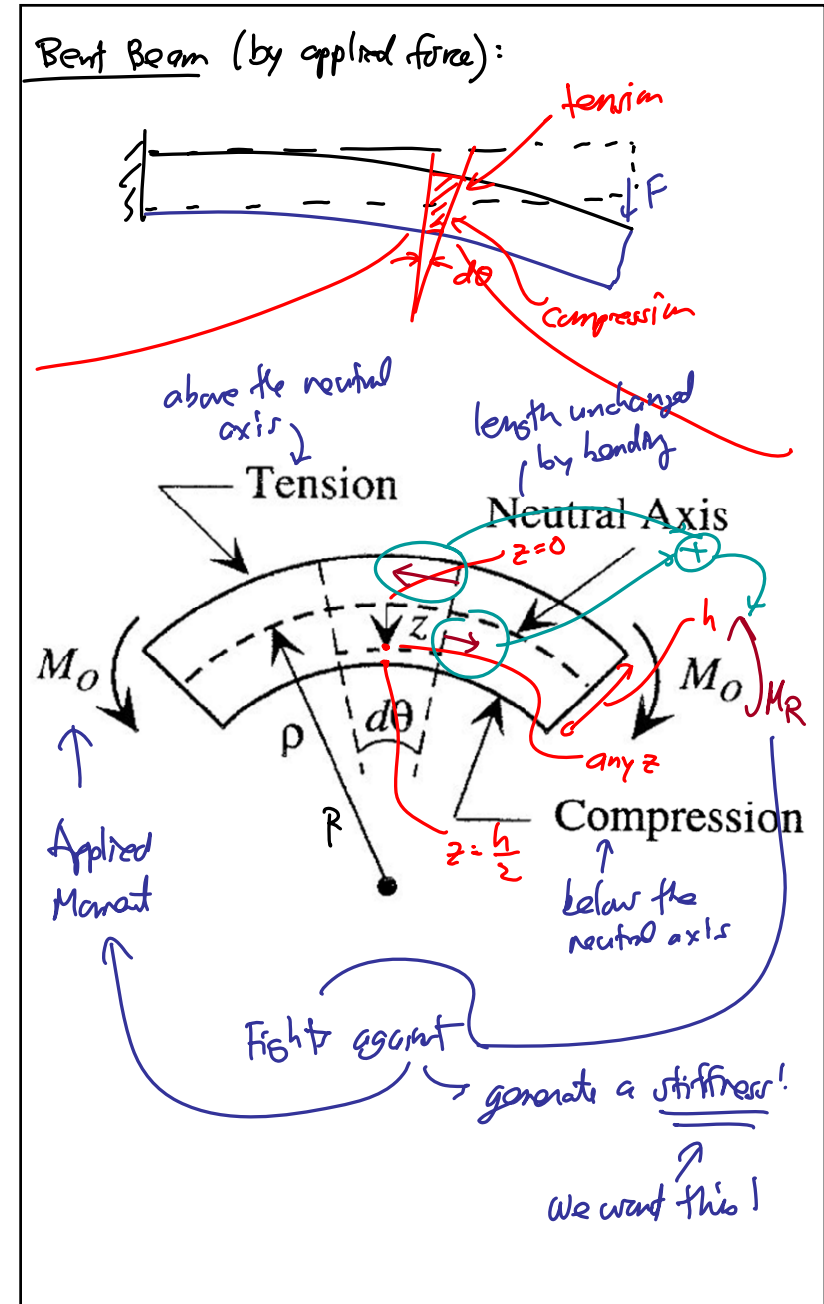 Bent Beam (by applied force):
tension
F
dθ
compression
above the neutral
axis
length unchanged
by bending
Tension
Neutral Axis
z=0
+
z
h
M_O
M_O
M_R
dθ
ρ
any z
R
Compression
z = h/2
Applied
Moment
below the
neutral axis
Fights against
generate a stiffness!
We want this!